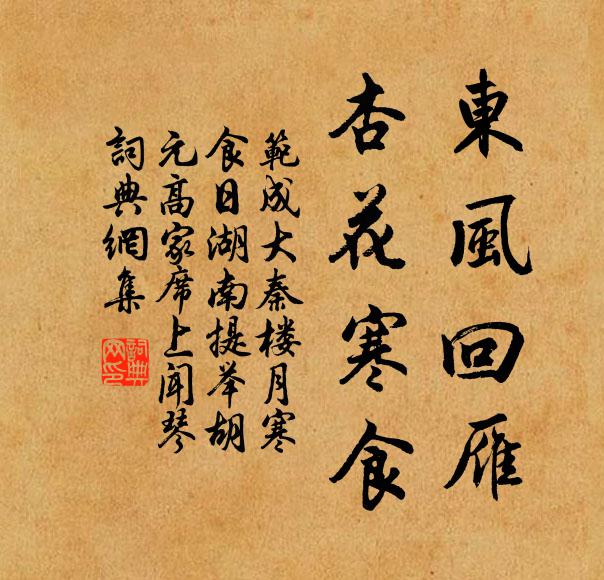 東風回雁
杏花寒食
範成大秦楼月寒
食日湖南提举胡
元高家席上闻琴
詞典網集
詞典
网印